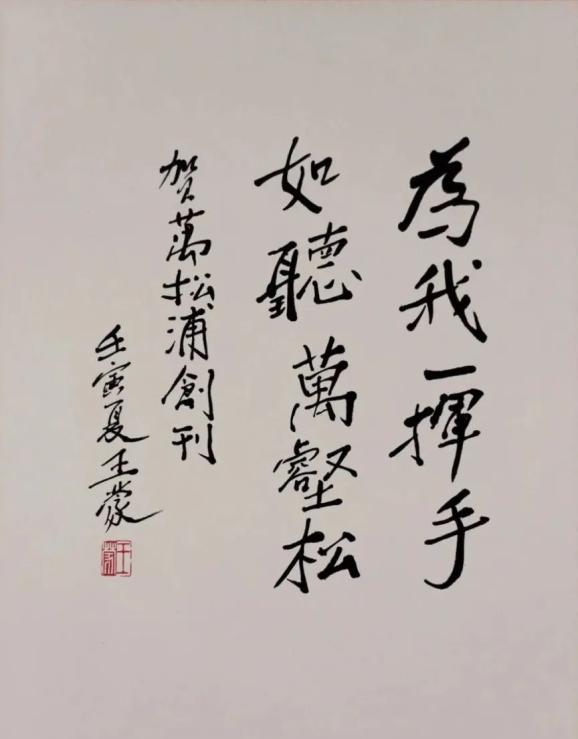 為我一揮手
如聽萬壑松
贺萬松浦創刊
壬寅夏王蒙
王蒙